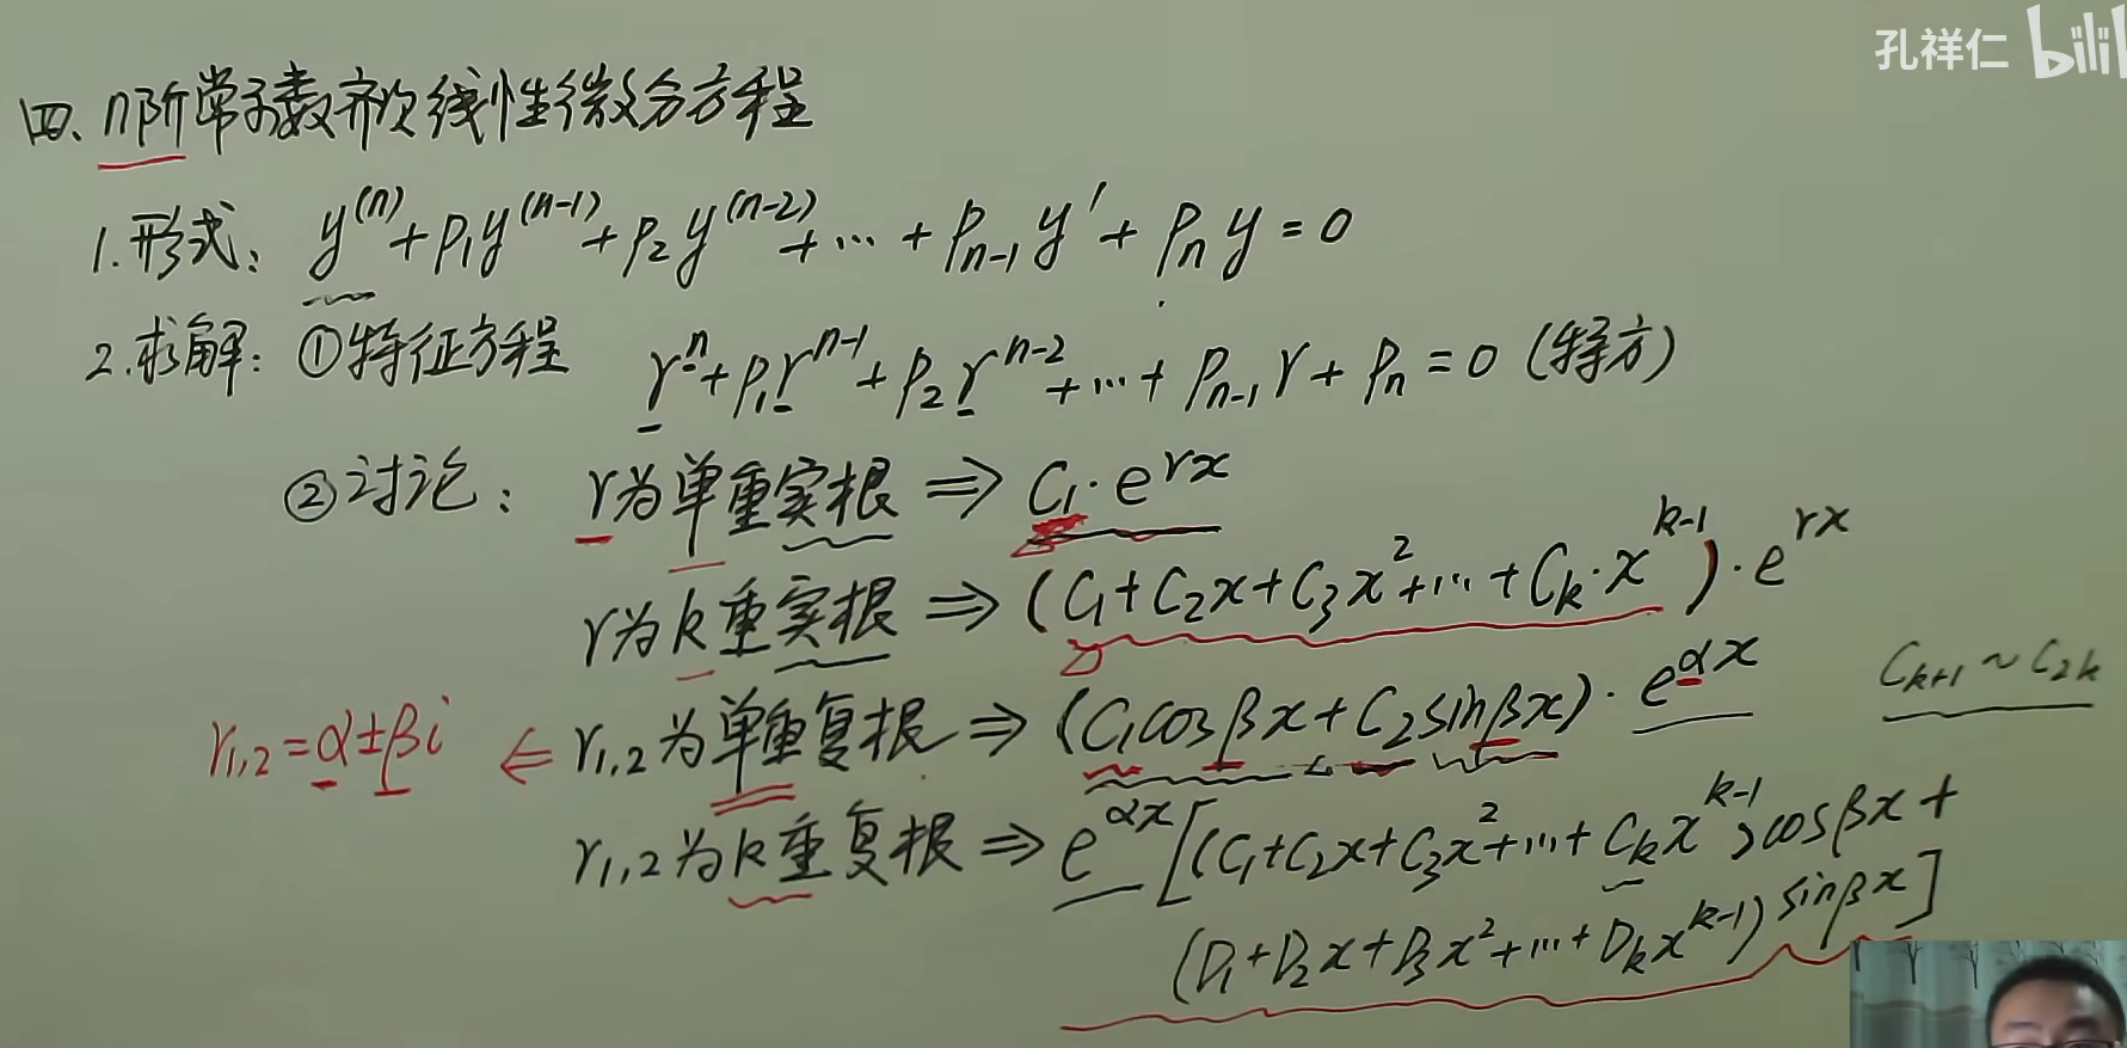 孔祥仁 bilil
四、n阶常系数齐次线性微分方程
1.形式: y^(n)+p₁y^(n-1)+p₂y^(n-2)+…+p_{n-1}y′+p_n y=0
2.求解: ①特征方程 r^n+p₁r^{n-1}+p₂r^{n-2}+…+p_{n-1}r+p_n=0 (特方)
②讨论: r为单重实根 ⇒ C₁·e^{rx}
r为k重实根 ⇒ (C₁+C₂x+C₃x²+…+C_k·x^{k-1})·e^{rx}
r₁,₂=α±βi ⇐ r₁,₂为单重复根 ⇒ (C₁cosβx+C₂sinβx)·e^{αx} C_{k+1}~C_{2k}
r₁,₂为k重复根 ⇒ e^{αx}[(C₁+C₂x+C₃x²+…+C_k x^{k-1})cosβx+
(D₁+D₂x+D₃x²+…+D_k x^{k-1})sinβx]